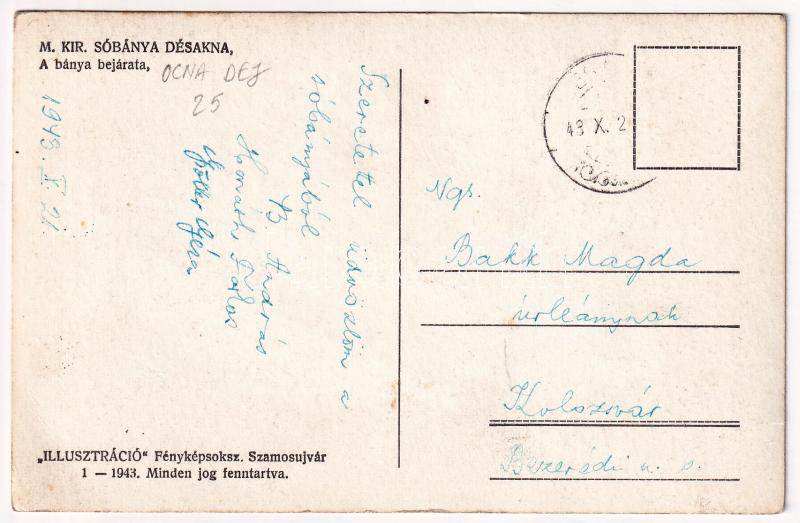 M. KIR. SÓBÁNYA DÉSAKNA,
A bánya bejárata,
OCNA DEJ
25
1943. X. 21.
Szeretettel üdvözlöm a
sóbányából
B. András
Horváth Farkas
Géza
43 X. 2
Ngs.
Bakk Magda
úrleánynak
Kolozsvár
Bezerédi u. 5.
„ILLUSZTRÁCIÓ" Fényképsoksz. Szamosujvár
1 — 1943. Minden jog fenntartva.